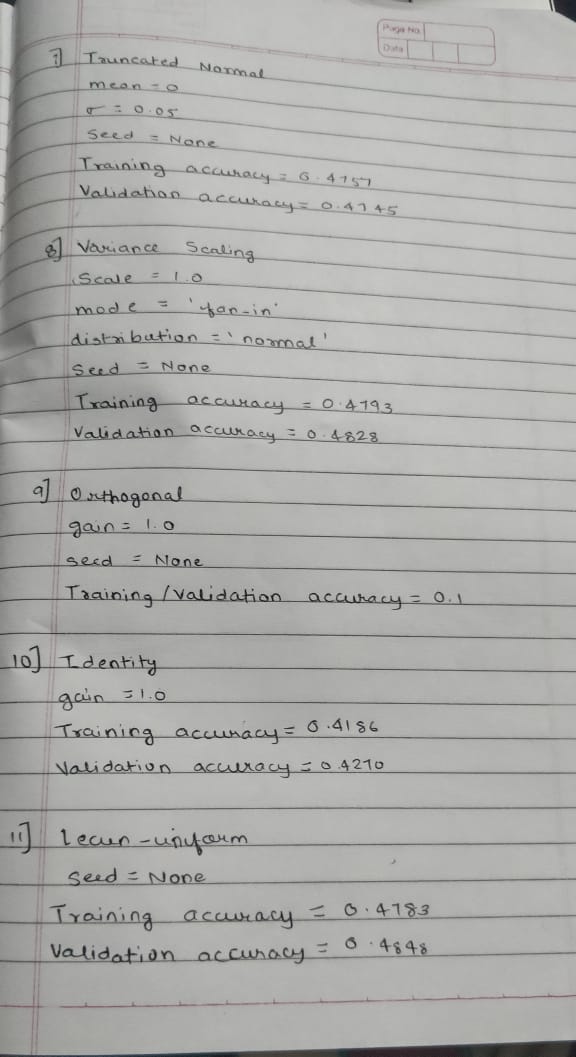 Page No.
Date
7] Truncated Normal
mean = 0
σ = 0.05
Seed = None
Training accuracy = 0.4757
Validation accuracy = 0.4745
8] Variance Scaling
Scale = 1.0
mode = 'fan-in'
distribution = 'normal'
Seed = None
Training accuracy = 0.4793
Validation accuracy = 0.4828
9] Orthogonal
gain = 1.0
seed = None
Training/validation accuracy = 0.1
10] Identity
gain = 1.0
Training accuracy = 0.4186
Validation accuracy = 0.4270
11] Lecun-uniform
Seed = None
Training accuracy = 0.4783
Validation accuracy = 0.4848